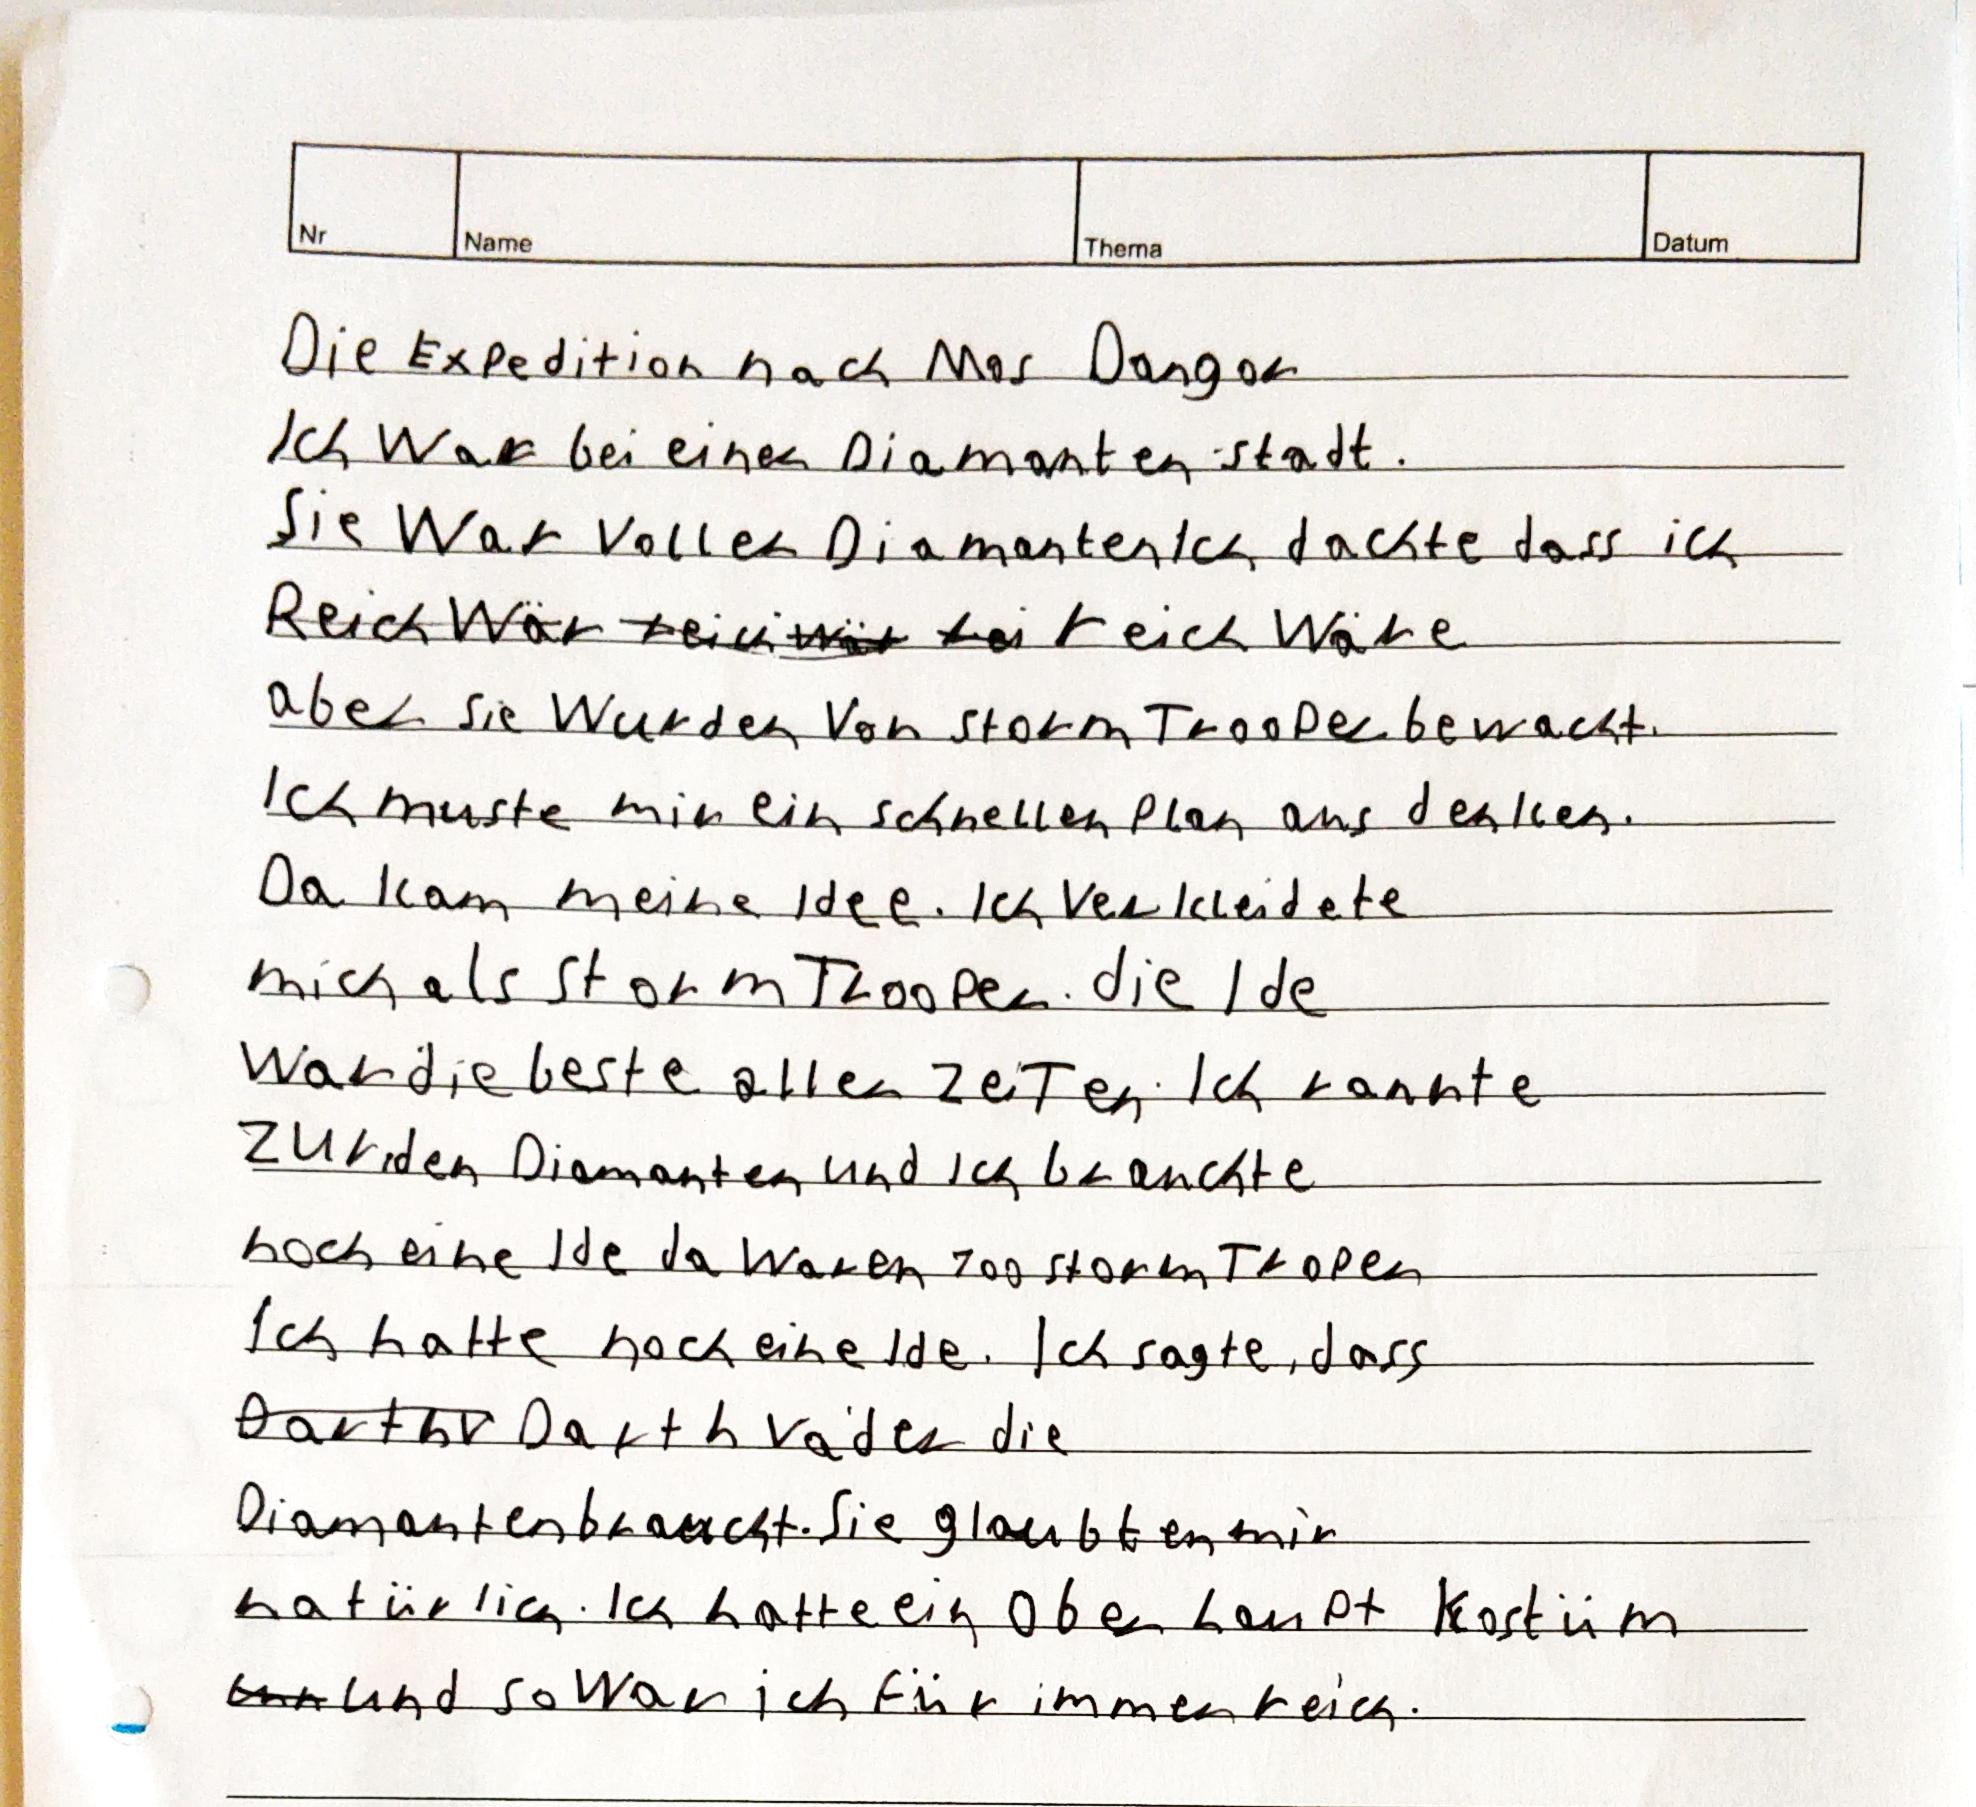 Nr Name Thema Datum
Die Expedition nach Mos Dangor
Ich War bei einer Diamanten stadt.
Sie War Voller DiamantenIch dachte dass ich
Reich Wär reich wär rei reich Wäre
aber sie Wurden Von storm Trooper bewacht.
Ich muste mir ein schnellen Plan aus denken.
Da kam meine Idee. Ich Verkleidete
mich als Storm Trooper. die Ide
War die beste aller ZeiTen. Ich rannte
Zur den Diamanten und Ich brauchte
noch eine Ide da Waren 700 storm Troper
Ich hatte noch eine Ide. Ich sagte, dass
Darthv Darth Vader die
Diamanten braucht. Sie glaubten mir
natürlich. Ich hatte ein Ober haupt Kostüm
unn und so War ich für immer reich.